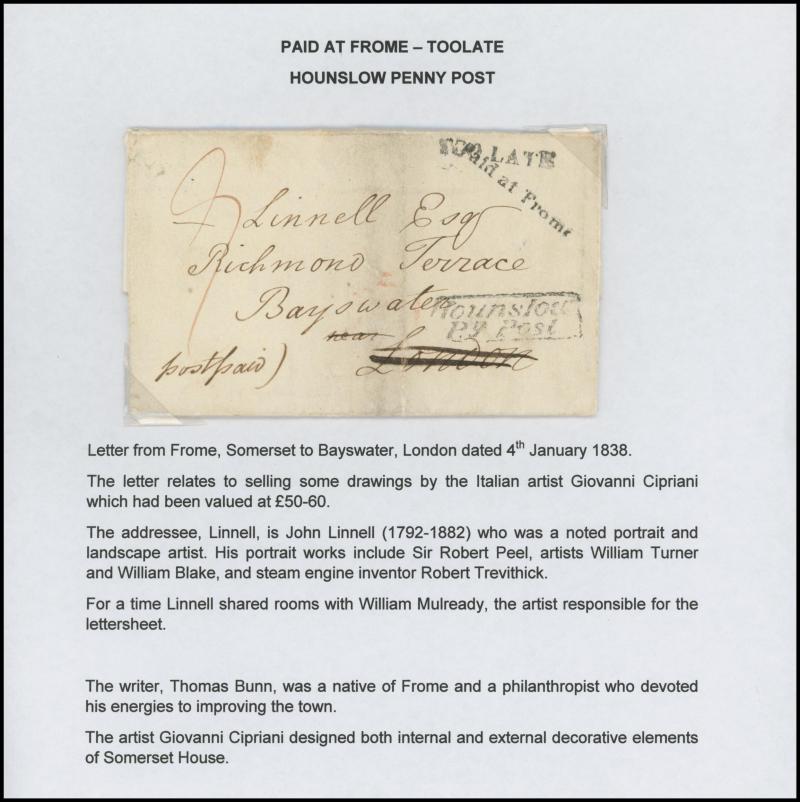 PAID AT FROME – TOOLATE
HOUNSLOW PENNY POST
TOO LATE
Paid at Frome
J Linnell Esq
Richmond Terrace
Bayswater
Hounslow
Py Post
near London
postpaid)
Letter from Frome, Somerset to Bayswater, London dated 4th January 1838.
The letter relates to selling some drawings by the Italian artist Giovanni Cipriani
which had been valued at £50-60.
The addressee, Linnell, is John Linnell (1792-1882) who was a noted portrait and
landscape artist. His portrait works include Sir Robert Peel, artists William Turner
and William Blake, and steam engine inventor Robert Trevithick.
For a time Linnell shared rooms with William Mulready, the artist responsible for the
lettersheet.
The writer, Thomas Bunn, was a native of Frome and a philanthropist who devoted
his energies to improving the town.
The artist Giovanni Cipriani designed both internal and external decorative elements
of Somerset House.